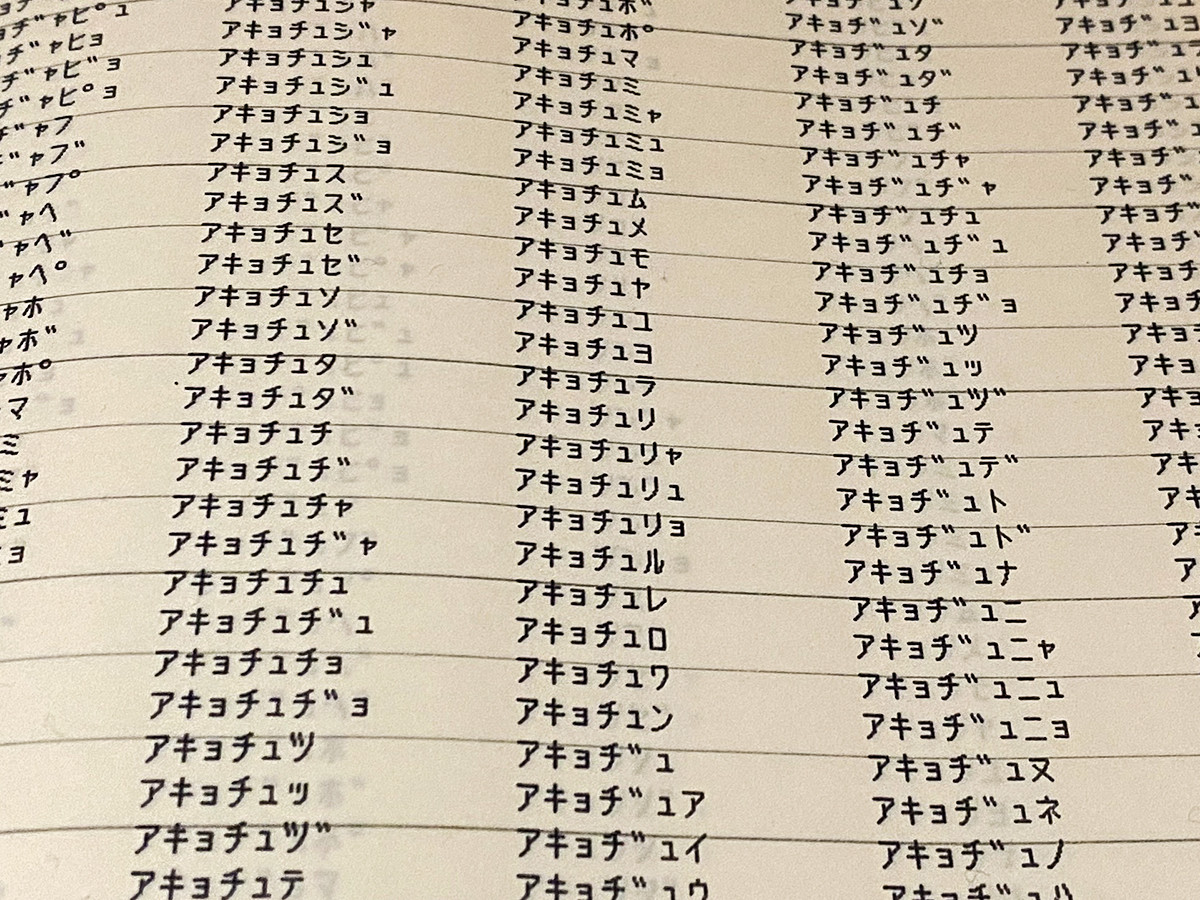 ヂャピュ
ヂャヒョ
ヂャビョ
ヂャピョ
ャフ
ャブ
ャプ
ャヘ
ャベ
ャペ
ャホ
ャボ
ャポ
マ
ミ
ミャ
ミュ
ョ
アキョチュシャ
アキョチュジャ
アキョチュシュ
アキョチュジュ
アキョチュショ
アキョチュジョ
アキョチュス
アキョチュズ
アキョチュセ
アキョチュゼ
アキョチュソ
アキョチュゾ
アキョチュタ
アキョチュダ
アキョチュチ
アキョチュヂ
アキョチュチャ
アキョチュヂャ
アキョチュチュ
アキョチュヂュ
アキョチュチョ
アキョチュヂョ
アキョチュツ
アキョチュッ
アキョチュヅ
アキョチュテ
アキョチュボ
アキョチュポ
アキョチュマ
アキョチュミ
アキョチュミャ
アキョチュミュ
アキョチュミョ
アキョチュム
アキョチュメ
アキョチュモ
アキョチュヤ
アキョチュユ
アキョチュヨ
アキョチュラ
アキョチュリ
アキョチュリャ
アキョチュリュ
アキョチュリョ
アキョチュル
アキョチュレ
アキョチュロ
アキョチュワ
アキョチュン
アキョヂュ
アキョヂュア
アキョヂュイ
アキョヂュウ
アキョヂュソ
アキョヂュゾ
アキョヂュタ
アキョヂュダ
アキョヂュチ
アキョヂュヂ
アキョヂュチャ
アキョヂュヂャ
アキョヂュチュ
アキョヂュヂュ
アキョヂュチョ
アキョヂュヂョ
アキョヂュツ
アキョヂュッ
アキョヂュヅ
アキョヂュテ
アキョヂュデ
アキョヂュト
アキョヂュド
アキョヂュナ
アキョヂュニ
アキョヂュニャ
アキョヂュニュ
アキョヂュニョ
アキョヂュヌ
アキョヂュネ
アキョヂュノ
アキョヂュハ
アキョヂュヨ
アキョヂュ
アキョヂュ
アキョヂュ
アキョヂュ
アキョヂ
アキョヂ
アキョヂ
アキョヂ
アキョチ
アキョチ
アキョ
アキョ
アキョ
アキョ
アキ
アキ
ア
ア
ア